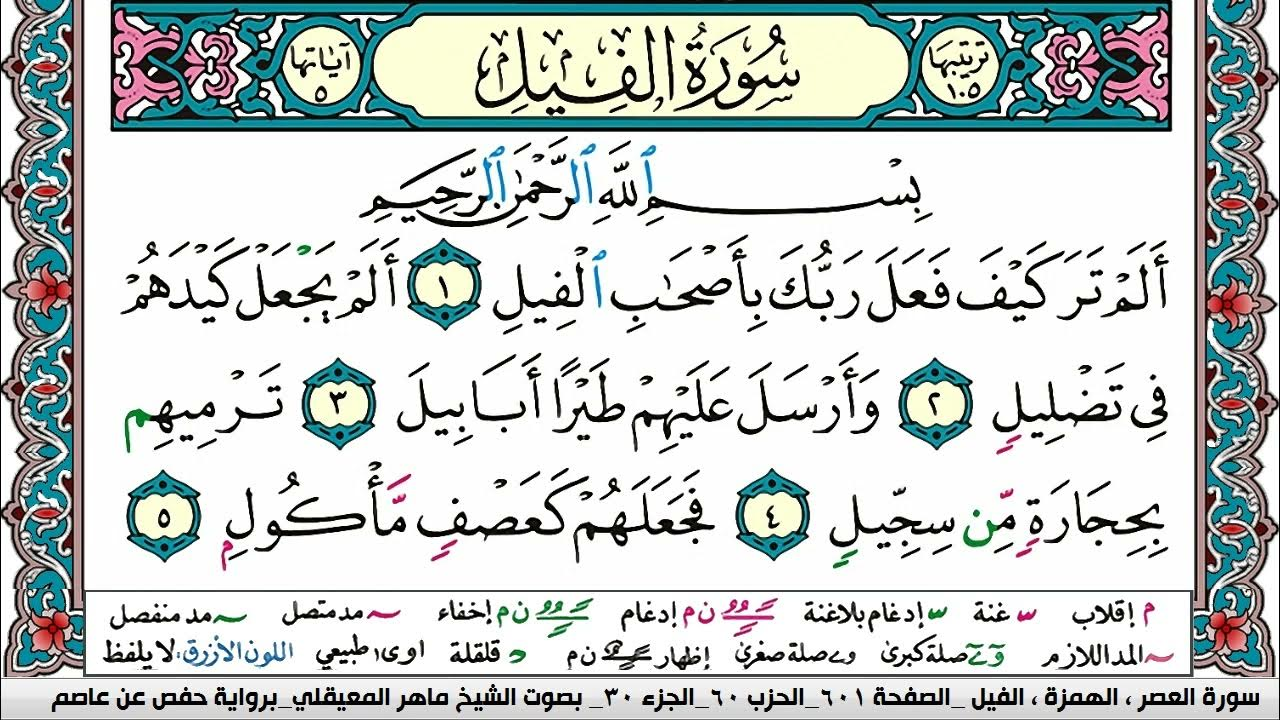 ترتيبها ١٠٥
سُورَةُ الفِيلِ
آياتها ٥
بِسْمِ ٱللَّهِ ٱلرَّحْمَٰنِ ٱلرَّحِيمِ
أَلَمْ تَرَ كَيْفَ فَعَلَ رَبُّكَ بِأَصْحَٰبِ ٱلْفِيلِ ١ أَلَمْ يَجْعَلْ كَيْدَهُمْ
فِى تَضْلِيلٍ ٢ وَأَرْسَلَ عَلَيْهِمْ طَيْرًا أَبَابِيلَ ٣ تَرْمِيهِم
بِحِجَارَةٍ مِّن سِجِّيلٍ ٤ فَجَعَلَهُمْ كَعَصْفٍ مَّأْكُولٍ ٥
م إقلاب غنة إدغام بلاغنة ن م إدغام ن م إخفاء مد متصل مد منفصل
المد اللازم صلة كبرىٰ صلة صغرىٰ إظهار ن م قلقلة اوى طبيعي اللون الأزرق: لا يلفظ
سورة العصر ، الهمزة ، الفيل _الصفحة ٦٠١_الحزب ٦٠_الجزء ٣٠_ بصوت الشيخ ماهر المعيقلي_برواية حفص عن عاصم